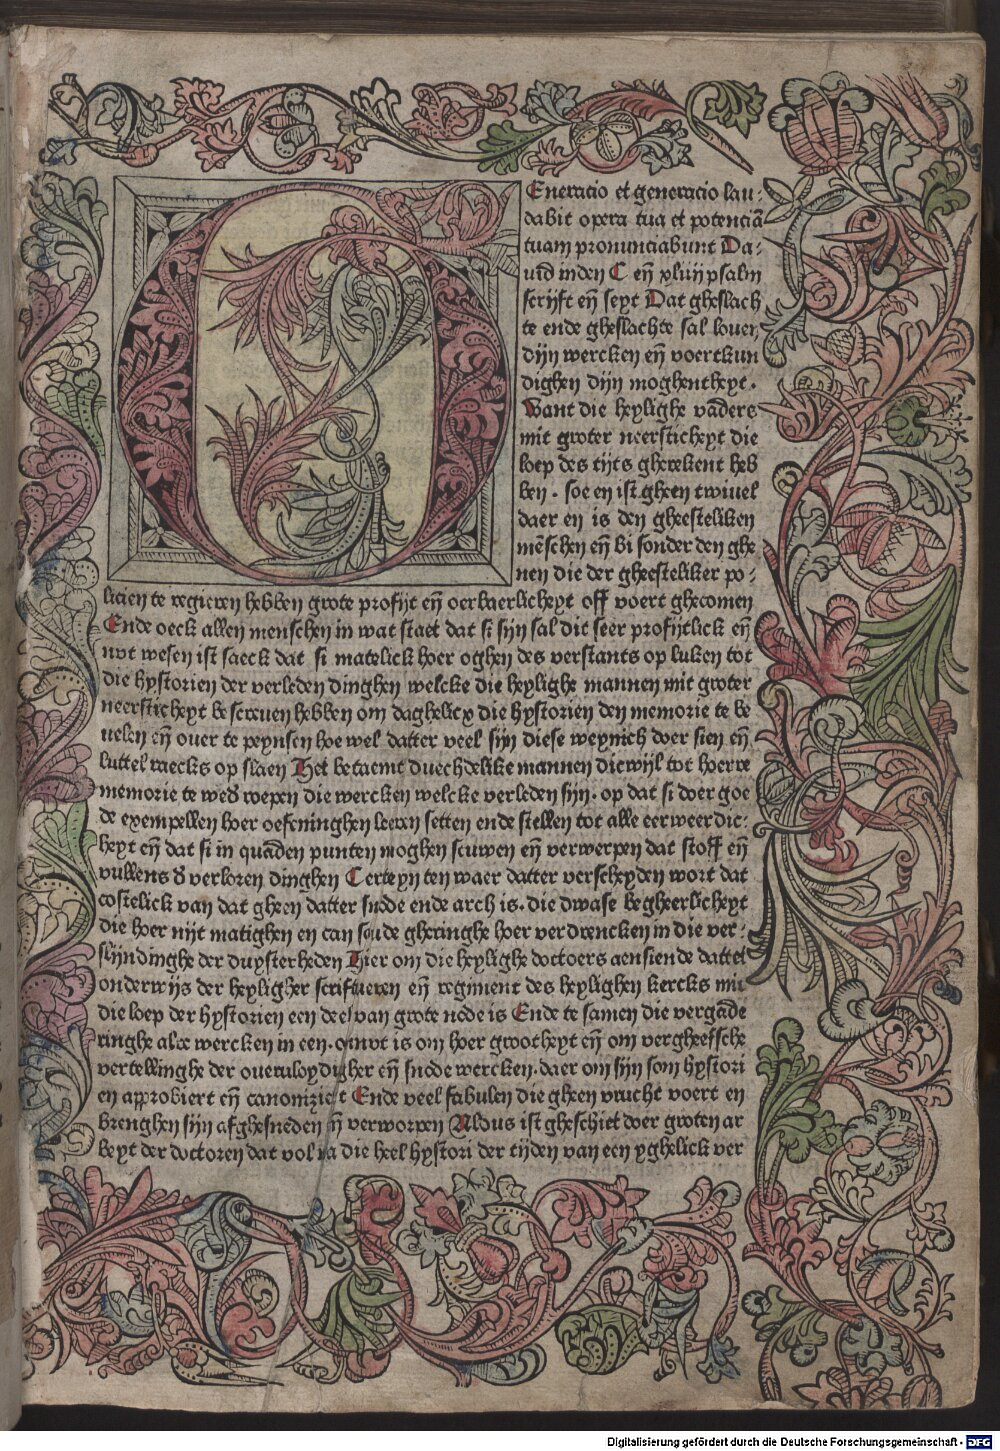 Eneracio et generacio lau⸗
dabit opera tua et potenciā
tuam pronunciabunt Da⸗
uid in den C eñ xliiij psalm
scrijft eñ seyt Dat gheslach
te ende gheslachte sal louen
dijn wercken eñ voertkun
dighen dijn moghentheyt.
Want die heylighe vaders
mit groter neersticheyt die
loep des tijts gherekent heb
ben. soe en ist gheen twiuel
daer en is den gheesteliken
mēschen eñ bi sonder den ghe
nen die der gheesteliker po⸗
licien te regieren hebben grote profijt eñ oerbaerlicheyt off voert ghecomen
Ende oeck allen menschen in wat staet dat si sijn sal dit seer profijtlick eñ
nut wesen ist saeck dat si matelick hoer oghen des verstants op luken tot
die hystorien der verleden dinghen welcke die heylighe mannen mit groter
neersticheyt bescreuen hebben om daghelicx die hystorien den memorie te be
uelen eñ ouer te peynsen hoe wel datter veel sijn diese weynich doer sien eñ
luttel raecks op slaen Het betaemt duechdelike mannen die wijl tot hoerre
memorie te wed̄ roepen die wercken welcke verleden sijn. op dat si doer goe
de exempellen hoer oefeninghen leeren setten ende stellen tot alle eerweerdic⸗
heyt eñ dat si in quadē punten moghen scuwen eñ verwerpen dat stoff eñ
vullens d̄ verloren dinghen Certeyn ten waer datter verscheyden wort dat
costelick van dat gheen datter snode ende arch is. die dwase begheerlicheyt
die hoer nijt matighen en can soude gheringhe hoer verdrencken in die ver⸗
slijndinghe der duysterheden Hier om die heylighe doctoers aensiende dattet
onderwijs der heyligher scriftueren eñ regiment des heylighen kercks mit
die loep der hystorien een deel van grote node is Ende te samen die vergade
ringhe alre wercken in een. nut is om hoer grootheyt eñ om vergheefsche
vertellinghe der oueruloydigher eñ snode wercken. daer om sijn som hystori
en approbiert eñ canonizeert Ende veel fabulen die gheen vrucht voert en
brenghen sijn afghesneden eñ verworpen Aldus ist gheschiet doer groten ar
beyt der doctoren dat vol na die heel hystori der tijden van een yghelick ver
Digitalisierung gefördert durch die Deutsche Forschungsgemeinschaft - DFG